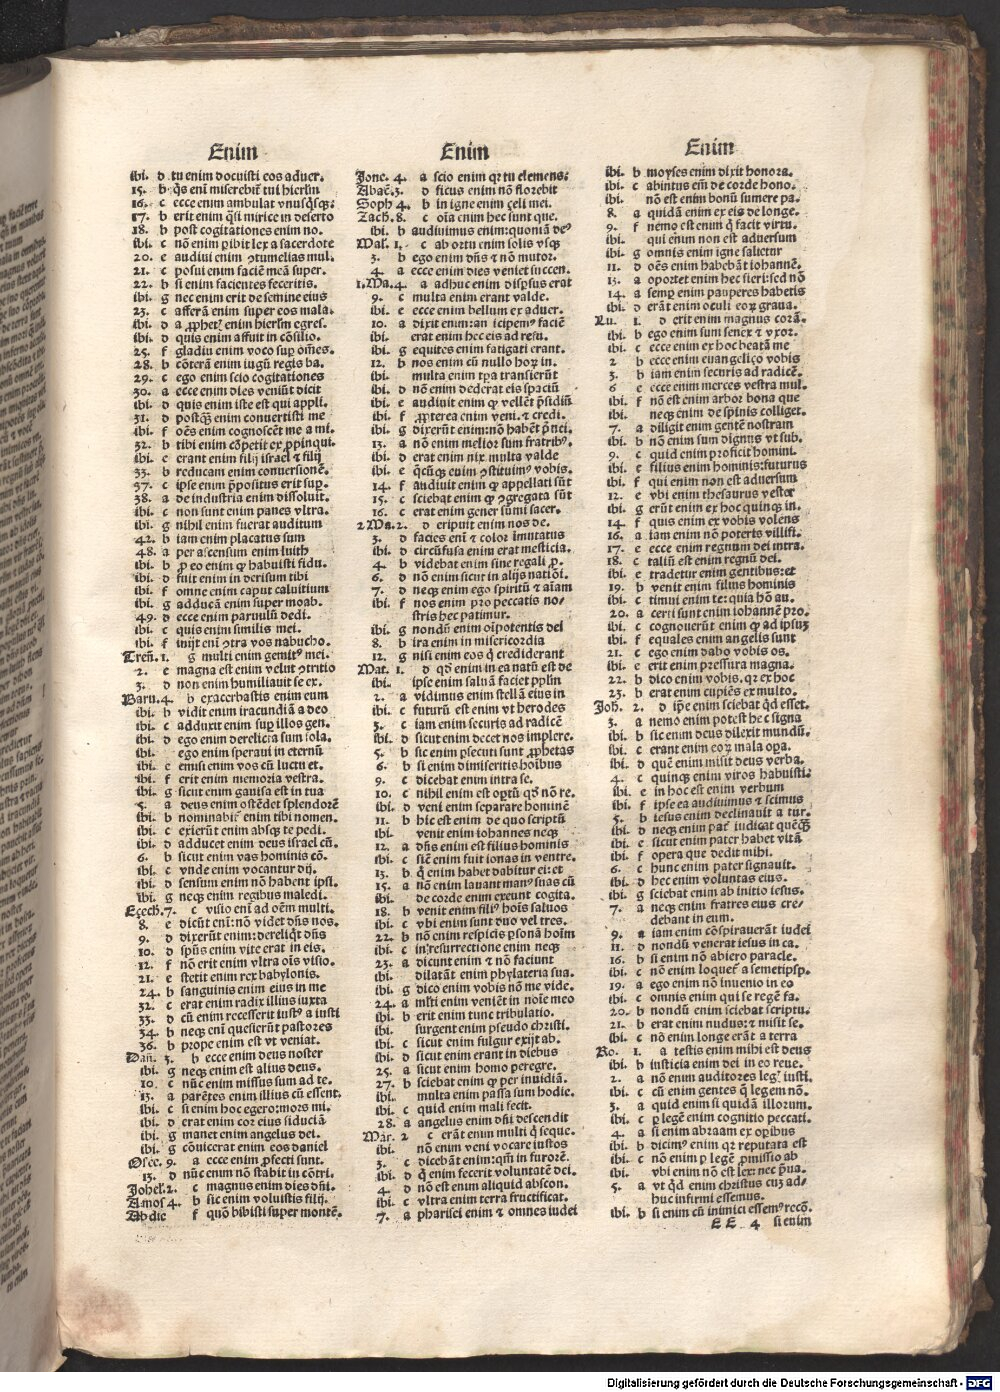 Enim
ibi. d tu enim docuisti eos aduer.
15. b q̄s eni miserebit̄ tui hierl̄m
16. c ecce enim ambulat vnusq̄sq̨:
17. b erit enim q̄si mirice in deserto
18. b post cogitationes enim no.
ibi. c nō enim pibit lex a sacerdote
20. e audiui enim ↄtumelias mul.
21. c posui enim faciē meā super.
22. b si enim facientes feceritis.
ibi. g nec enim erit de semine eius
23. c afferā enim super eos mala.
ibi. d a ꝓphet̄ enim hierl̄m egres.
ibi. d quis enim affuit in cōsilio.
25. f gladiu enim voco sup oēs.
28. b cōterā enim iugū regis ba.
29. c ego enim scio cogitationes
30. a ecce enim dies veniūt dicit
ibi. d quis enim iste est qui appli.
31. d postq̄ enim conuertisti me
ibi. f oēs enim cognoscēt me a mi.
32. b tibi enim cōpetit ex ꝓpinqui.
ibi. e erant enim filij israel ⁊ filij
33. b reducam enim conuersionē.
37. c ipse enim p̄positus erit sup.
38. a de industria enim dissoluit.
ibi. c non sunt enim panes vltra.
ibi. g nihil enim fuerat auditum
42. b iam enim placatus sum
48. a per ascensum enim luith
ibi. b ꝓ eo enim ꝙ habuisti fidu.
ibi. d fuit enim in derisum tibi
ibi. f omne enim caput caluitium
ibi. g adducā enim super moab.
49. d ecce enim paruulū dedi.
ibi. c quis enim similis mei.
ibi. f inijt eni ↄtra vos nabucho.
Treñ. 1. g multi enim gemit⁹ mei.
2. e magna est enim velut ↄtritio
3. d non enim humiliauit se ex.
Baru. 4. b exacerbastis enim eum
ibi. b vidit enim iracundiā a deo
ibi. c adduxit enim sup illos gen.
ibi. d ego enim derelicta sum sola.
ibi. ego enim speraui in eternū
ibi. e emisi enim vos cū luctu et.
ibi. f erit enim memoria vestra.
ibi. g sicut enim gauisa est in tua
5. a deus enim ostēdet splendorē
ibi. b nominabit̄ enim tibi nomen.
ibi. c exierūt enim absq̨ te pedi.
ibi. d adducet enim deus israel cū.
6. b sicut enim vas hominis cō.
ibi. c vnde enim vocantur dij.
ibi. d sensum enim nō habent ipsi.
ibi. g neq̨ enim regibus maledi.
Ezech. 7. c visio eni ad oēm multi.
8. e dicūt eni: nō videt dn̄s nos.
9. d dixerūt enim: dereliq̄t dn̄s
10. d spūs enim vite erat in eis.
12. f nō erit enim vltra oīs visio.
21. e stetit enim rex babylonis.
24. b sanguinis enim eius in me
32. c erat enim radix illius iuxta
33. d cū enim recesserit iust⁹ a iusti
34. b neq̨ eni quesierūt pastores
36. b prope enim est vt veniat.
Dañ. 3. b ecce enim deus noster
ibi. g neq̨ enim est alius deus.
10. c nūc enim missus sum ad te.
13. a parētes enim illius cū essent.
ibi. c si enim hoc egero: mors mi.
ibi. d erat enim cor eius fiduciā
ibi. g manet enim angelus dei.
ibi. g cōuicerat enim eos daniel
Osee. 9. a ecce enim ꝓfecti sunt.
13. d nūc enim nō stabit in cōtri.
Johel. 2. c magnus enim dies dn̄i.
Amos 4. b sic enim voluistis filij.
Abdie f quō bibisti super montē.
Enim
Jone. 4. a scio enim qr tu clemens:
Abac̄. 3. d ficus enim nō florebit
Soph 4. b in igne enim zeli mei.
Zach. 8. c oīa enim hec sunt que.
ibi. b audiuimus enim: quoniā de⁹
Mal. 1. c ab ortu enim solis vsq̨
3. b ego enim dn̄s ⁊ nō mutor.
4. a ecce enim dies veniet succen.
1. Ma. 4. a adhuc enim disp̄sus erat
9. c multa enim erant valde.
ibi. e ecce enim bellum ex aduer.
10. a dixit enim: anticipem⁹ faciē
ibi. erat enim hec eis ad resu.
ibi. g equites enim fatigati erant.
12. b nos enim cū nullo hoꝝ in.
ibi. multa enim tpa transierūt
ibi. d nō enim dederat eis spaciū
ibi. e audiuit enim ꝙ vellēt p̄sidiū
ibi. f ꝓpterea enim veni. ⁊ credi.
ibi. g dixerūt enim: nō habēt p̄nci.
13. a nō enim melior sum fratrib⁹.
ibi. d erat enim nix multa valde
ibi. e q̄cūq̨ enim ↄstituim⁹ vobis.
14. f audiuit enim ꝙ appellati sūt
15. c sciebat enim ꝙ ↄgregata sūt
16. c erat enim gener sūmi sacer.
2 Ma. 2. d eripuit enim nos de.
3. d facies enī ⁊ color īmutatus
ibi. d circūfusa enim erat mesticia.
4. b videbat enim sine regali p̄.
6. d nō enim sicut in alijs natiōi.
7. d neq̨ enim ego spiritū ⁊ aīam
ibi. f nos enim pro peccatis no⸗
stris hec patimur.
ibi. g nondū enim oīpotentis dei
8. b ira enim in misericordia
12. g nisi enim eos q̄ crediderant
Mat. 1. d qd̄ enim in ea natū est de
ibi. ipse enim saluā faciet ppl̄m
2. a vidimus enim stellā eius in
ibi. c futurū est enim vt herodes
3. c iam enim securis ad radicē
ibi. d sicut enim decet nos implere.
5. b sic enim psecuti sunt ꝓphetas
6. b si enim dimiseritis hoībus
9. c dicebat enim intra se.
10. c nihil enim est optū qd̄ nō re.
ibi. d veni enim separare hominē
11. b hic est enim de quo scriptū
ibi. venit enim iohannes neq̨
12. a dn̄s enim est filius hominis
ibi. c sic̄ enim fuit ionas in ventre.
13. b q̄ enim habet dabitur ei: et
15. a nō enim lauant man⁹ suas cū
ibi. de corde enim exeunt cogita.
18. b venit enim fili⁹ hoīs saluos
ibi. c vbi enim sunt duo vel tres.
22. b nō enim respicis psonā hoīm
ibi. c in resurrectione enim neq̨
23. a dicunt enim ⁊ nō faciunt
ibi. dilatāt enim phylateria sua.
ibi. g dico enim vobis nō me vide.
24. a ml̄ti enim veniēt in noīe meo
ibi. b erit enim tunc tribulatio.
ibi. surgent enim pseudo christi.
ibi. c sicut enim fulgur exijt ab.
ibi. d sicut enim erant in diebus
25. a sicut enim homo peregre.
27. b sciebat enim ꝙ per inuidiā.
ibi. multa enim passa sum hodie.
ibi. c quid enim mali fecit.
28. a angelus enim dn̄i descendit
Mar. 2 c erāt enim multi q̄ seque.
ibi. nō enim veni vocare iustos
3. c dicebāt enim: qm̄ in furorē.
ibi. d q̄ enim fecerit voluntatē dei.
4. d nō est enim aliquid abscon.
ibi. c vltra enim terra fructificat.
7. a pharisei enim ⁊ omnes iudei
Enim
ibi. b moyses enim dixit honora.
ibi. c abintus em̄ de corde hono.
ibi. nō est enim bonū sumere pa.
8. a quidā enim ex eis de longe.
9. f nemo est enim q̄ facit virtu.
ibi. qui enim non est aduersum
ibi. g omnis enim igne salietur
11. d oēs enim habebāt iohannē.
13. a oportet enim hec fieri: sed nō
14. a semp enim pauperes habetis
ibi. d erāt enim oculi eoꝝ graua.
Lu. 1. d erit enim magnus corā.
ibi. b ego enim sum senex ⁊ vxor.
ibi. c ecce enim ex hoc beatā me
2 b ecce enim euangelizo vobis
3. b iam enim securis ad radicē.
6 e ecce enim merces vestra mul.
ibi. f nō est enim arbor bona que
ibi. neq̨ enim de spinis colliget.
7. a diligit enim gentē nostram
ibi. b nō enim sum dignus vt sub.
9. c quid enim proficit homini.
ibi. e filius enim hominis: futurus
ibi. f qui enim non est aduersum
12. e vbi enim thesaurus vester
ibi. g erūt enim ex hoc quinq̨ in.
14. f quis enim ex vobis volens
16. a iam enim nō poteris villifi.
17. e ecce enim regnum dei intra.
18. c taliū est enim regnū dei.
ibi. e tradetur enim gentibus: et
19. b venit enim filius hominis
ibi. c timui enim te: quia hō au.
20. a certi sunt enim iohannē pro.
ibi. c cognouerūt enim ꝙ ad ipsuz
ibi. f equales enim angelis sunt
21. c ego enim dabo vobis os.
ibi. e erit enim pressura magna.
22. b dico enim vobis. qz ex hoc
23. b erat enim cupiēs ex multo.
Joh. 2. d ip̄e enim sciebat qd̄ esset.
3. a nemo enim potest hec signa
ibi. b sic enim deus dilexit mundū.
ibi. c erant enim eoꝝ mala opa.
ibi. d quē enim misit deus verba.
4. c quinq̨ enim viros habuisti:
ibi. e in hoc est enim verbum
ibi. f ipsi ea audiuimus ⁊ scimus
5. b iesus enim declinauit a tur.
ibi. d neq̨ enim pat̄ iudicat quēq̄
ibi. e sicut enim pater habet vitā
ibi. f opera que dedit mihi.
6. c hunc enim pater signauit.
ibi. d hec enim voluntas eius.
ibi. g sciebat enim ab initio iesus.
7. a neq̨ enim fratres eius cre⸗
debant in eum.
9. a iam enim cōspirauerāt iudei
11. d nondū venerat iesus in ca.
16. b si enim nō abiero paracle.
ibi. c nō enim loquet̄ a semetipsꝑ.
19. a ego enim nō inuenio in eo
ibi. c omnis enim qui se regē fa.
20. b nondū enim sciebat scriptu.
21. b erat enim nudus: ⁊ misit se.
ibi. c nō enim longe erāt a terra
Ro. 1. a testis enim mihi est deus
ibi. b iusticia enim dei in eo reue.
2. a nō enim auditores leg⁹ iusti.
ibi. c cū enim gentes q̄ legem nō.
3. a quid enim si quidā illorum.
ibi. c p legē enim cognitio peccati.
4. a si enim abraam ex opibus
ibi. b dicim⁹ enim qz reputata est
ibi. c nō enim p legē pmissio ab
ibi. vbi enim nō est lex: nec p̄ua.
5. a vt qd̄ enim christus cuz ad⸗
huc infirmi essemus.
ibi. b si enim cū inimici essem⁹ recō.
EE 4 si enim
Digitalisierung gefördert durch die Deutsche Forschungsgemeinschaft - DFG